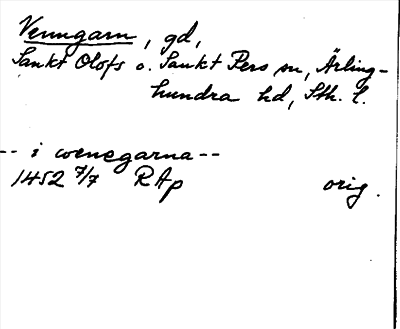 Venngarn, gd,
Sankt Olofs o. Sankt Pers sn, Ärling-
hundra hd, Sth. l.
-- i wenegarna --
1452 7/7 RAp orig.